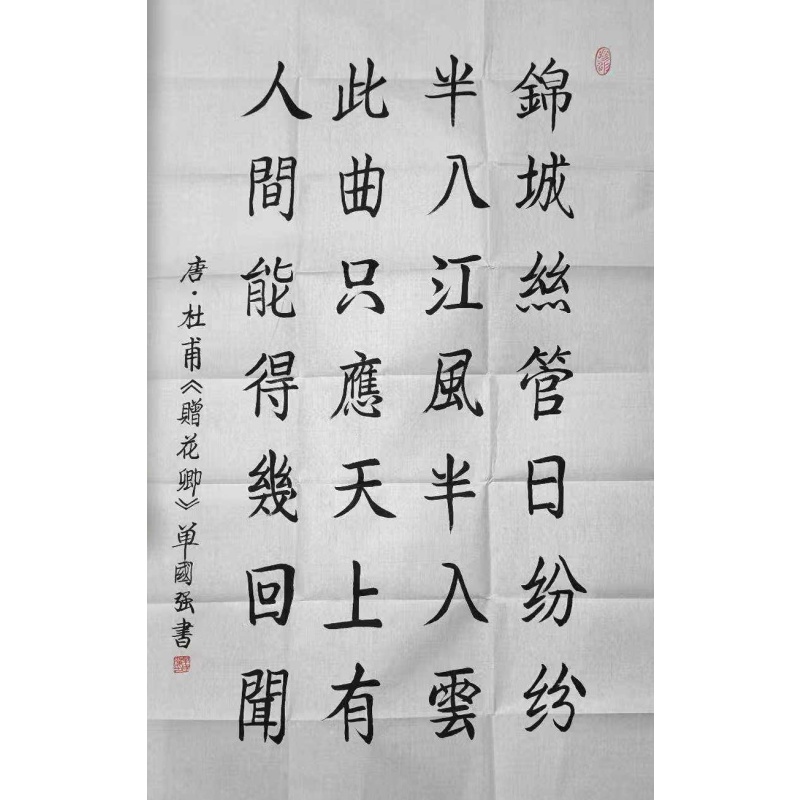 錦城絲管日纷纷
半八江風半入雲
此曲只應天上有
人間能得幾回聞
唐·杜甫《贈花卿》单國强書